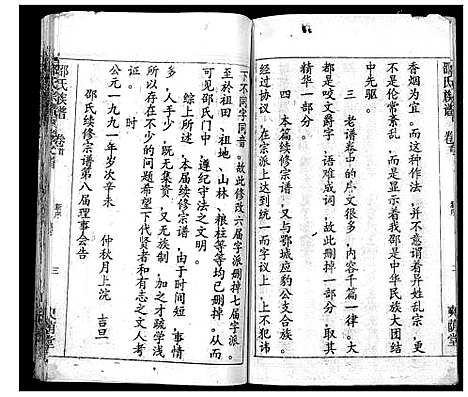 邵氏族谱
卷首
新序
三
爽荫堂
香烟为宜。而这种作法，并不意谓着异姓乱宗，
不是伦常紊乱，而是显示着我邵是中华民族大团结
中先驱。
三　老谱卷中的序文很多，内容千篇一律。大
都是咬文爵字，语难成词，故此删掉一部分。
精华一部分。
四　本篇续修宗谱，又与鄂城应豹公支合族。
经过协议，在宗派上达到统一而字议上，上不犯讳
下不同字同音。故此修改六届字派删掉七届字派。
至於祖田、祖地、山林、粮柱等等均已删掉。从而
可见邵氏门中，遵纪守法之文明。
综上所述，本届续修宗谱，由于时间短，事情
多，人手少，既无集资，又无族制，加之才疏学浅
所以存在不少的问题希望下代贤者和有志之文人考
证。时
公元一九九一年岁次辛未　仲秋月上沅　吉旦
邵氏续修宗谱第八届理事会告
邵氏族谱
卷首
新序
三
爽荫堂